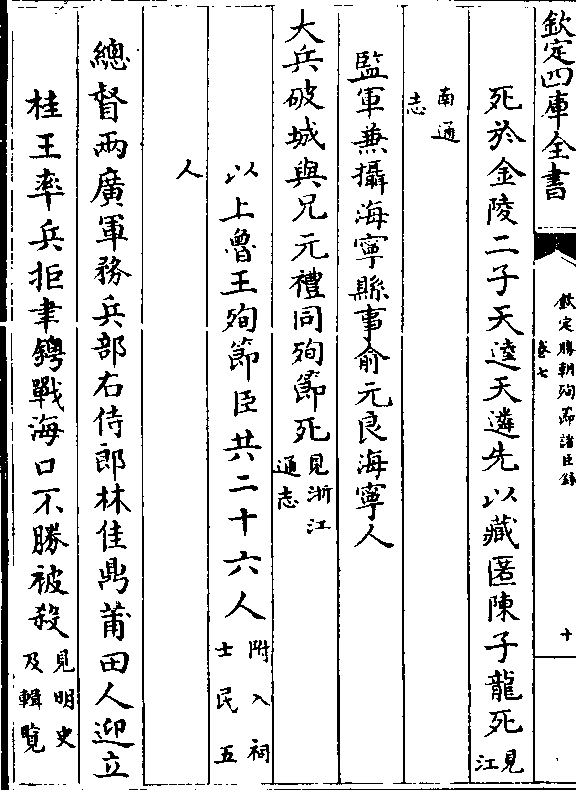 欽定四庫全書
欽定勝朝殉節諸臣錄
卷七
十
死於金陵二子天逵天遴先以藏匿陳子龍死見江
南通志
監軍兼攝海寧縣事俞元良海寧人
大兵破城與兄元禮同殉節死見浙江通志
以上魯王殉節臣共二十六人附入祠士民五
人
總督兩廣軍務兵部右侍郎林佳鼎莆田人迎立
桂王率兵拒聿鐭戰海口不勝被殺見明史及輯覽